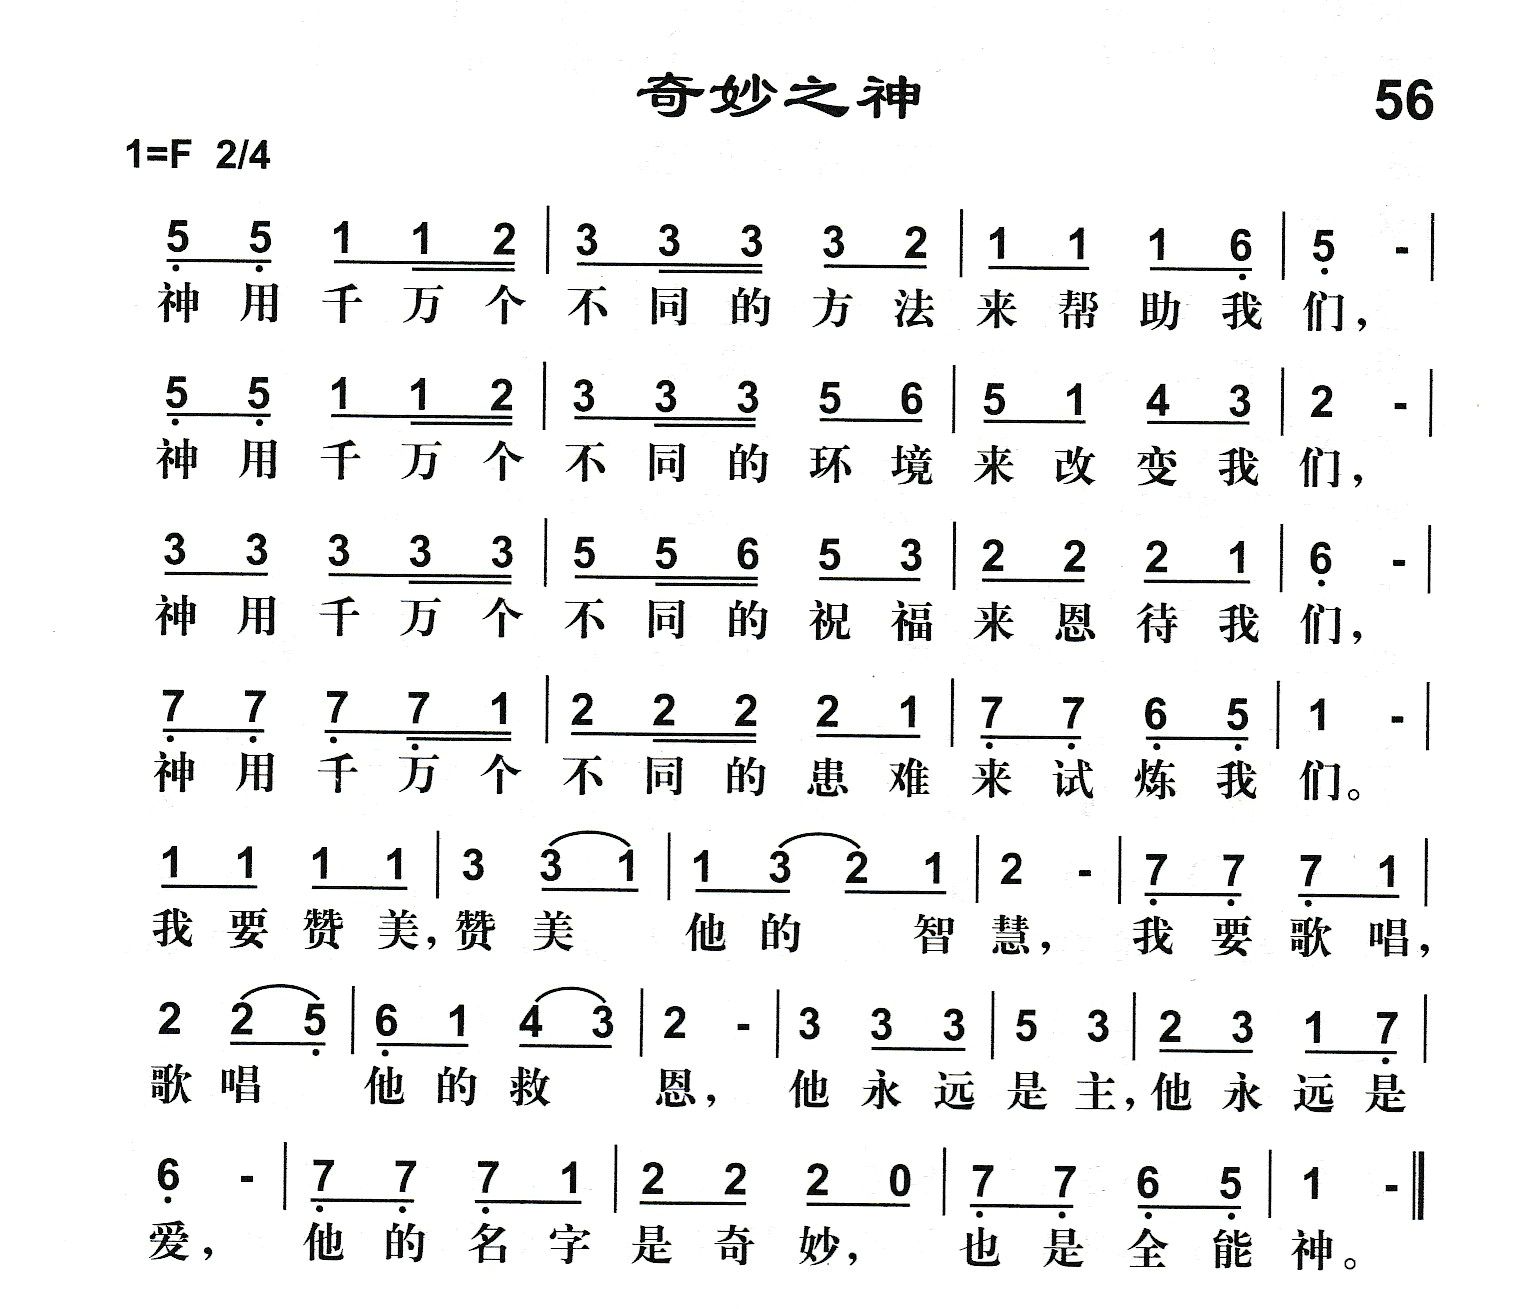 奇妙之神 56
1=F 2/4
5 5 1 1 2 | 3 3 3 3 2 | 1 1 1 6 | 5 - |
神用千万个不同的方法来帮助我们，
5 5 1 1 2 | 3 3 3 5 6 | 5 1 4 3 | 2 - |
神用千万个不同的环境来改变我们，
3 3 3 3 3 | 5 5 6 5 3 | 2 2 2 1 | 6 - |
神用千万个不同的祝福来恩待我们，
7 7 7 7 1 | 2 2 2 2 1 | 7 7 6 5 | 1 - |
神用千万个不同的患难来试炼我们。
1 1 1 1 | 3 3 1 | 1 3 2 1 | 2 - | 7 7 7 1 |
我要赞美，赞美他的智慧，我要歌唱，
2 2 5 | 6 1 4 3 | 2 - | 3 3 3 | 5 3 | 2 3 1 7 |
歌唱他的救恩，他永远是主，他永远是
6 - | 7 7 7 1 | 2 2 2 0 | 7 7 6 5 | 1 - ‖
爱，他的名字是奇妙，也是全能神。